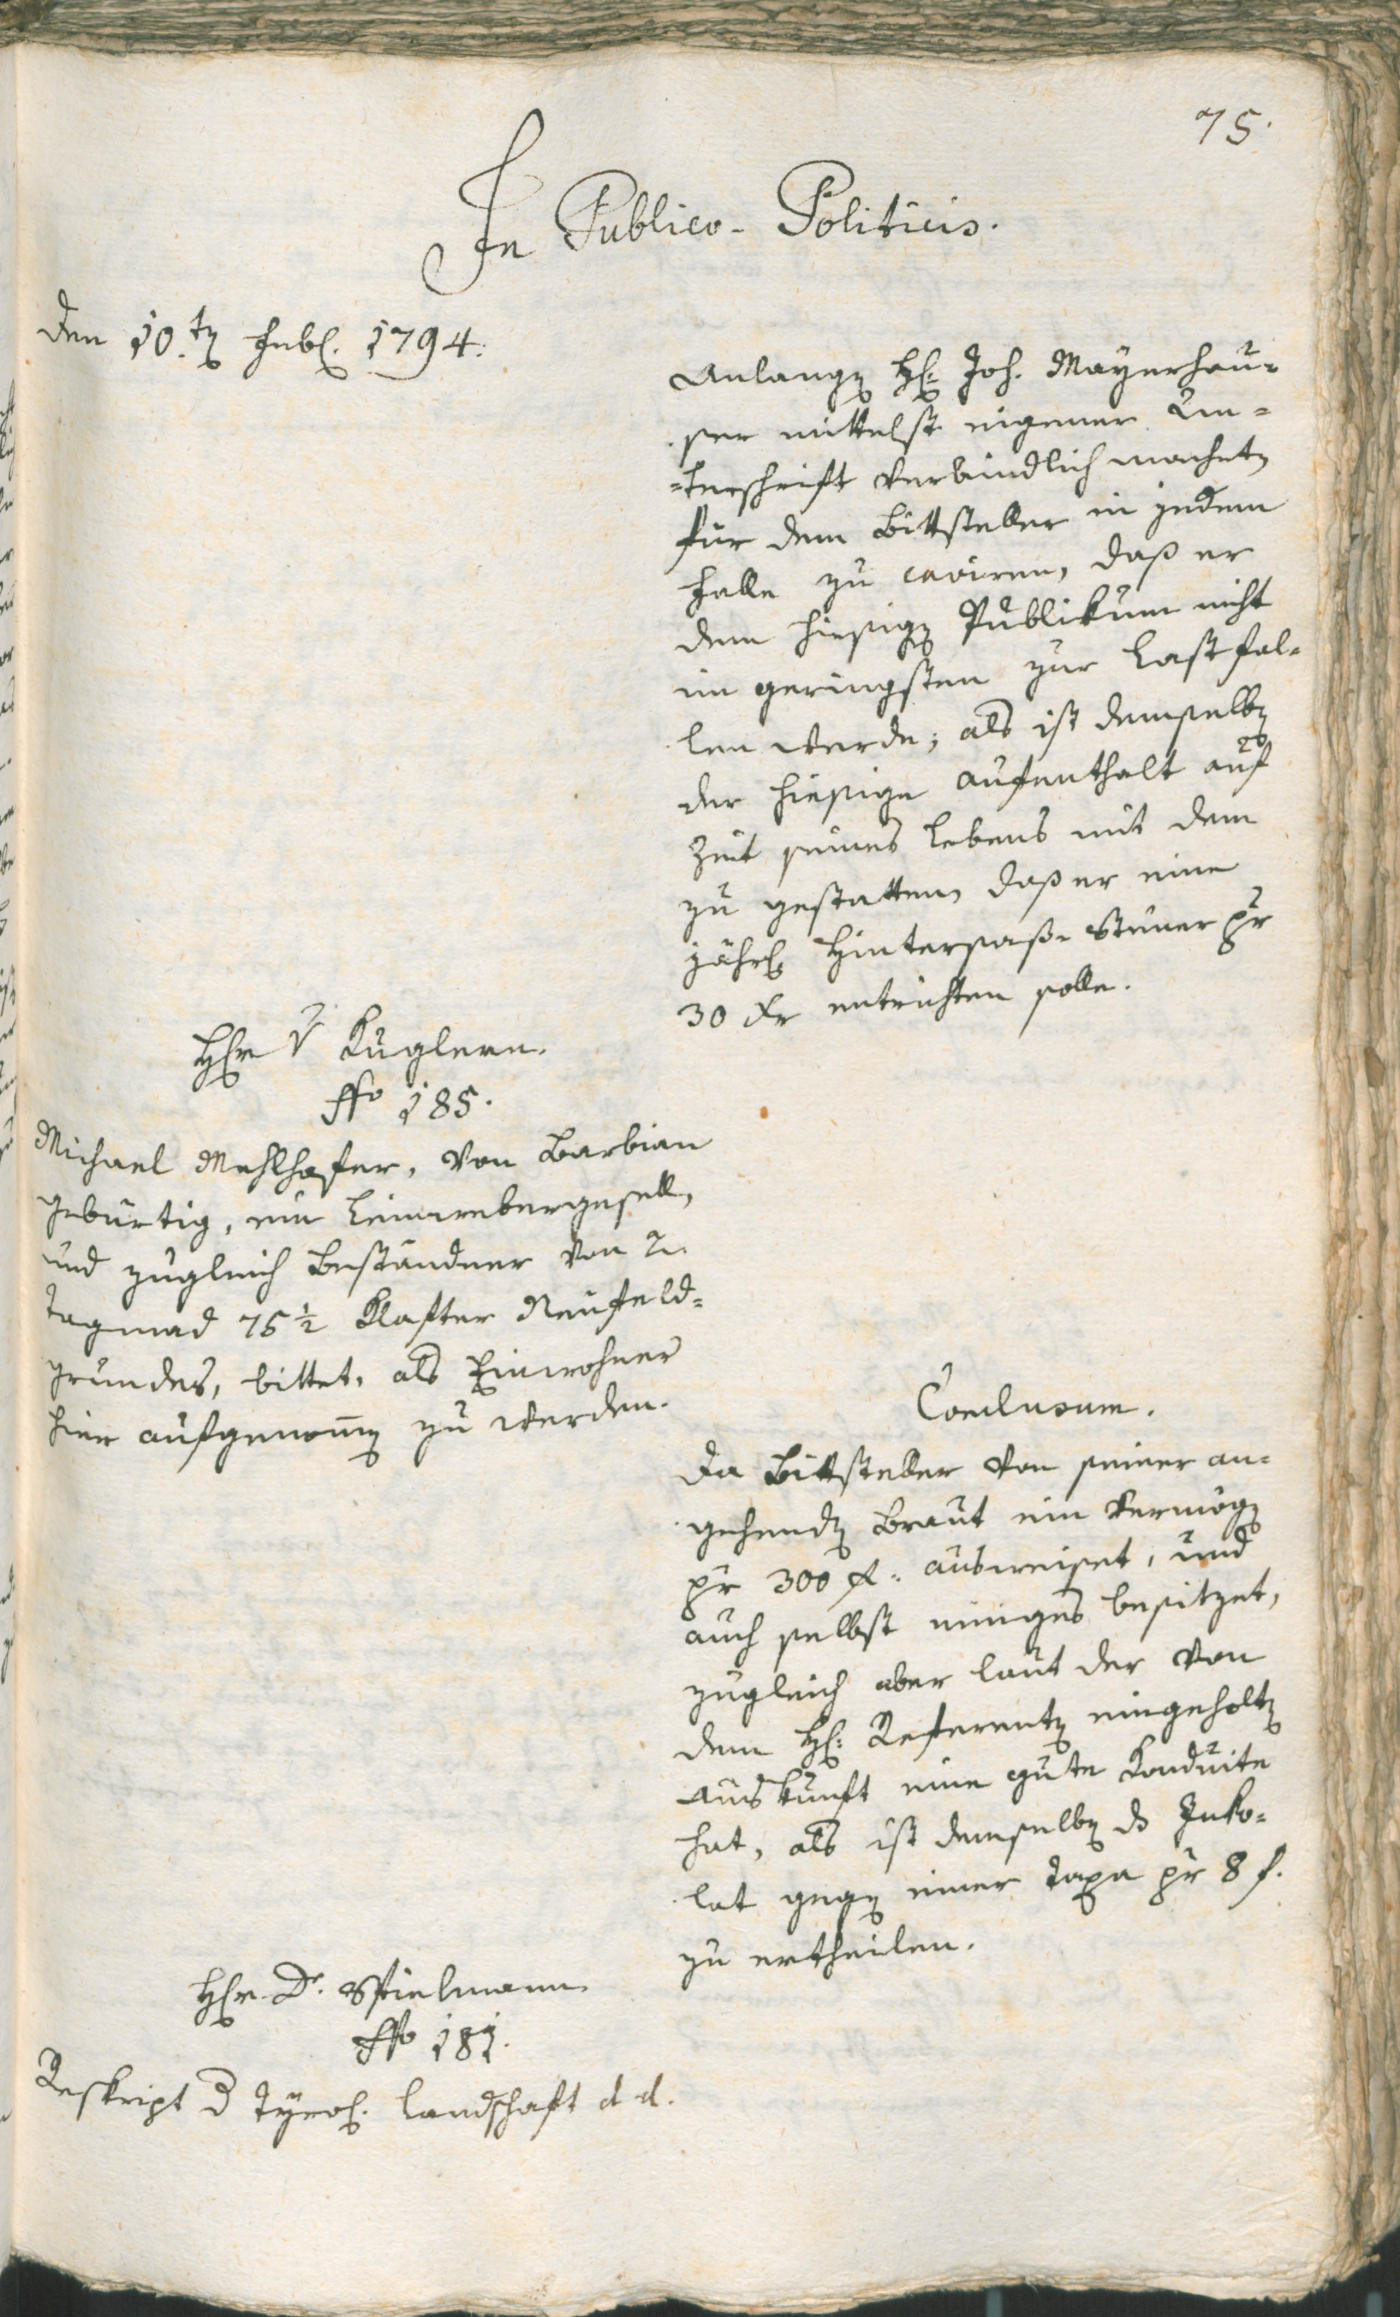 75.
In Publico-Politicis.
Den 10.ten Febr. 1794.
Anlangen H: Joh. Mayrhau-
ser mittelst eigener Un-
=terschrift verbindlich machete
für dem Bittsteller in jedem
Falle zu caviren, daß er
dem hiesigen Publikum nicht
im geringsten zur Last fal-
len werde; als ist demselben
der hiesige Aufenthalt auf
Zeit seines Lebens mit dem
zu gestatten, daß er eine
jährl. Hintersaß-Steuer pr
30 xr entrichten solle.
Hr v Kuglern.
fo 185.
Michael Mehlhofer, von Barbian
gebürtig, ein Leinwebergesell,
und zugleich Beständner von 2.
Tagmad 75 1/2 Klafter Neufeld-
grundes, bittet, als Einwohner
hier aufgenomen zu werden.
Conclusum.
Da Bittsteller von seiner an-
gehenden Braut ein Vermögen
pr 300 f. ausweiset, und
auch selbst einiges besitzet,
zugleich aber laut der von
dem H: Referenten eingeholten
Auskunft eine gute Konduite
hat, als ist demselben ds Inko-
lat gegen einer Taxa pr 8 f.
zu ertheilen.
Hr Dr. Spielmann
fo 181.
Reskript d Tyrol. Landschaft d d.